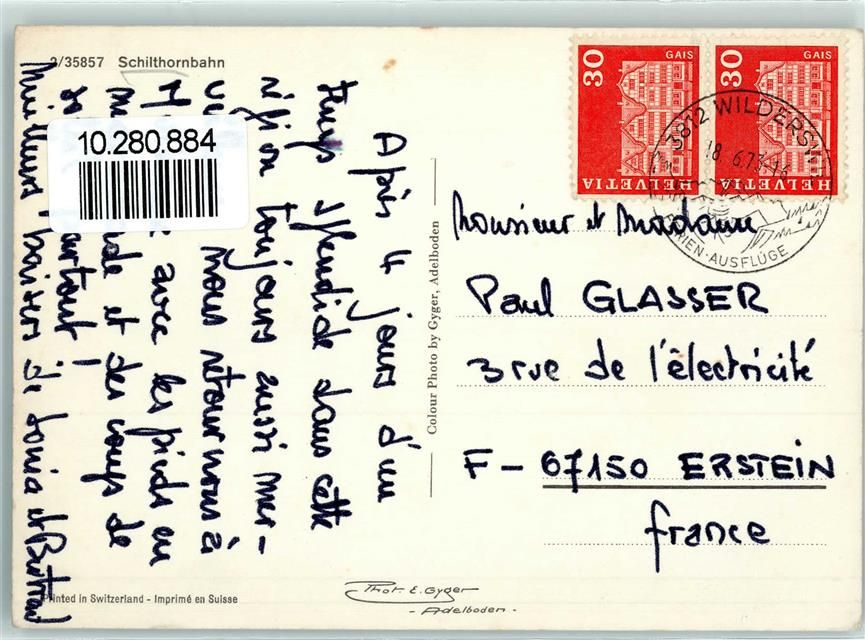 2/35857 Schilthornbahn
10.280.884
Après 4 jours d'un
temps splendide dans cette
région toujours aussi mer-
ve nous retournons à
M avec les pieds en
de et des coups de
partout !
Meilleurs baisers de Sonia et
Colour Photo by Gyger, Adelboden
30
GAIS
HELVETIA
30
GAIS
HELVETIA
3812 WILDERSWIL
18.6.73-16
FERIEN-AUSFLÜGE
Monsieur et Madame
Paul GLASSER
3 rue de l'électricité
F - 67150 ERSTEIN
france
Printed in Switzerland - Imprimé en Suisse
Phot. E. Gyger
- Adelboden -